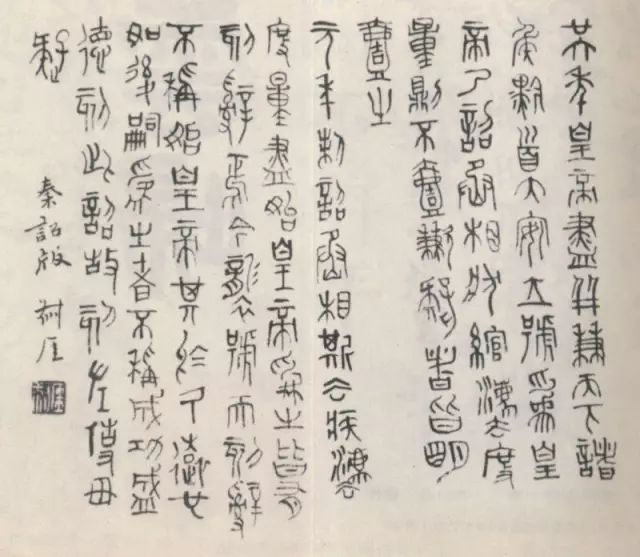 廿六年皇帝盡并兼天下諸
侯黔首大安立號為皇
帝乃詔丞相狀綰灋度
量則不壹歉疑者皆明
壹之
元年制詔丞相斯去疾灋
度量盡始皇帝為之皆有
刻辭焉今襲號而刻辭
不稱始皇帝其於久遠也
如後嗣為之者不稱成功盛
德刻此詔故刻左使毋
疑
秦詔版